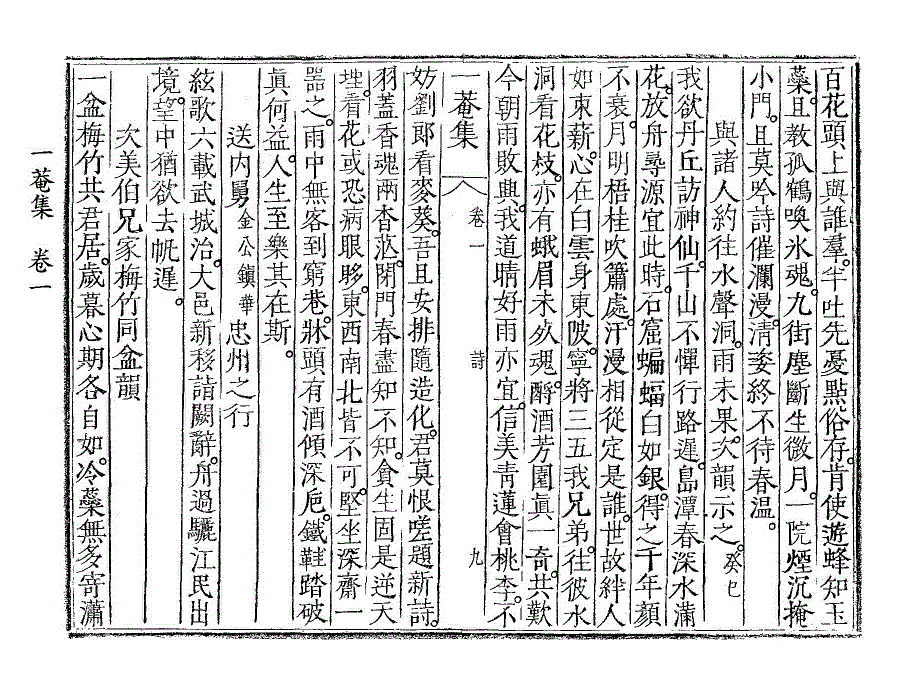 百花頭上與誰羣。半吐先憂點俗存。肯使遊蜂知玉
蘂。且教孤鶴喚氷魂。九街塵斷生微月。一院煙沉掩
小門。且莫吟詩催瀾漫。淸姿終不待春溫。
與諸人約往水聲洞。雨未果。次韻示之。癸巳
我欲丹丘訪神仙。千山不憚行路遲。島潭春深水滿
花。放舟尋源宜此時。石窟蝙蝠白如銀。得之千年顏
不衰。月明梧桂吹簫處。汗漫相從定是誰。世故絆人
如束薪。心在白雲身東陂。寧將三五我兄弟。往彼水
洞看花枝。亦有蛾眉未㱡魂。酹酒芳園眞一奇。共歎
今朝雨敗興。我道晴好雨亦宜。信美靑蓮會桃李。不
一菴集
卷一
詩
九
妨劉郞看麥葵。吾且安排隨造化。君莫恨嗟題新詩。
羽蓋香魂兩杳茫。閉門春盡知不知。貪生固是逆天
理。看花或恐病眼眵。東西南北皆不可。堅坐深齋一
噐之。雨中無客到窮巷。牀頭有酒傾深巵。鐵鞋踏破
眞何益。人生至樂其在斯。
送內舅金公鎭華忠州之行
絃歌六載武城治。大邑新移詣闕辭。舟過驪江民出
境。望中猶欲去帆遲。
次美伯兄家梅竹同盆韻
一盆梅竹共君居。歲暮心期各自如。冷蘂無多寄瀟
一菴集 卷一